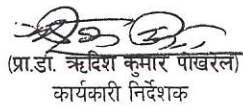 (प्रा.डा. ऋदिश कुमार पोखरेल)
कार्यकारी निर्देशक